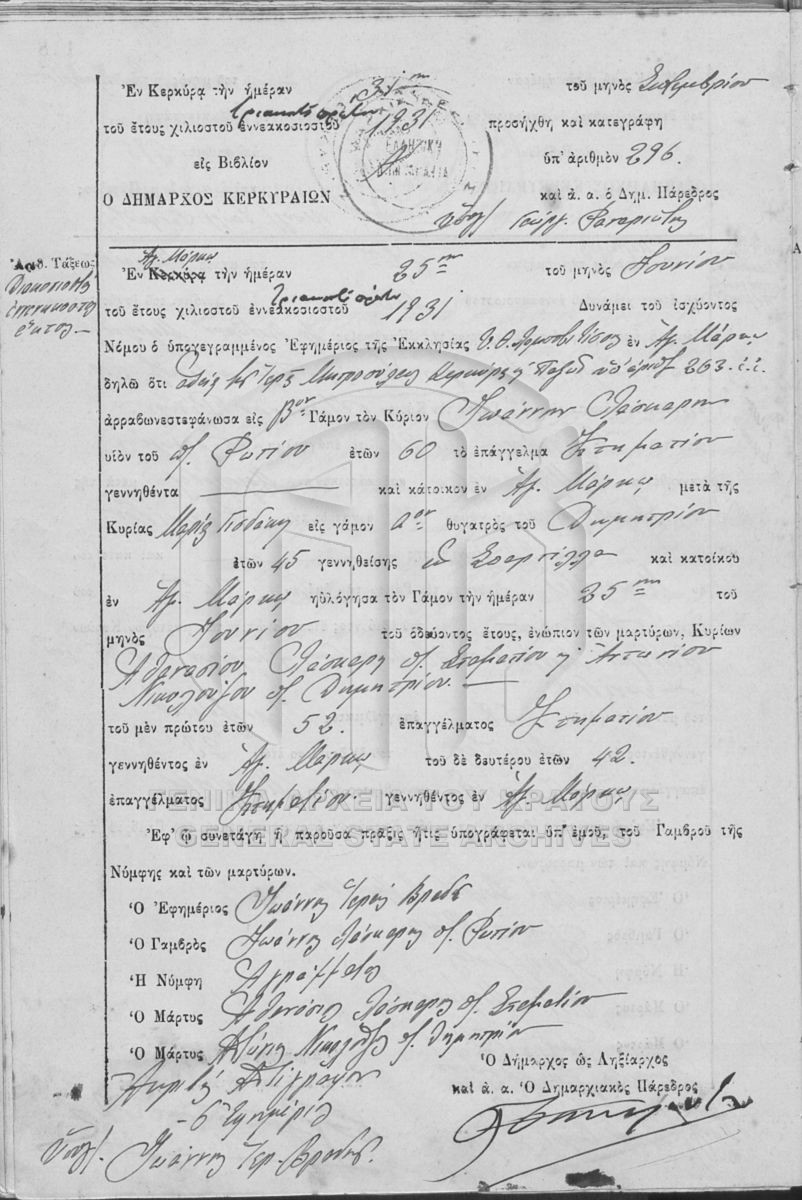 Ἐν Κερκύρᾳ τὴν ἡμέραν 31ην τοῦ μηνὸς
τοῦ ἔτους χιλιοστοῦ ἐννεακοσιοστοῦ τριακοστοῦ πρώτου 1931 προσήχθη καὶ κατεγράφη
εἰς Βιβλίον ὑπ' ἀριθμὸν 296.
Ὁ ΔΗΜΑΡΧΟΣ ΚΕΡΚΥΡΑΙΩΝ καὶ ἀ. α. ὁ Δημ. Πάρεδρος
Ἀριθ. Τάξεως
Διακοσιοστὴ
ἐνενηκοστὴ
ἕκτη
Ἐν Κερκύρᾳ Ἁγ. Μάρκῳ τὴν ἡμέραν 25ην τοῦ μηνὸς Ἰουνίου
τοῦ ἔτους χιλιοστοῦ ἐννεακοσιοστοῦ τριακοστοῦ πρώτου 1931 Δυνάμει τοῦ ἰσχύοντος
Νόμου ὁ ὑπογεγραμμένος Ἐφημέριος τῆς Ἐκκλησίας ἐν Ἁγ. Μάρκῳ
δηλῶ ὅτι ἀδείᾳ τῆς Ἱερᾶς Μητροπόλεως Κερκύρας ὑπ' ἀριθ. 263
ἀρραβωνεστεφάνωσα εἰς βον Γάμον τὸν Κύριον Ἰωάννην Λάσκαρην
υἱὸν τοῦ π. Φωτίου ἐτῶν 60 τὸ ἐπάγγελμα Κτηματίου
γεννηθέντα — καὶ κάτοικον ἐν Ἁγ. Μάρκῳ μετὰ τῆς
Κυρίας εἰς γάμον αον θυγατρὸς τοῦ Δημητρίου
ἐτῶν 45 γεννηθείσης ἐν Σπαρτύλλᾳ καὶ κατοίκου
ἐν Ἁγ. Μάρκῳ ηὐλόγησα τὸν Γάμον τὴν ἡμέραν 25ην τοῦ
μηνὸς Ἰουνίου τοῦ ὁδεύοντος ἔτους, ἐνώπιον τῶν μαρτύρων, Κυρίων
Ἀθανασίου Λάσκαρη π. Σταματίου Ἀντωνίου
Νικολούζου π. Δημητρίου. —
τοῦ μὲν πρώτου ἐτῶν 52. ἐπαγγέλματος Κτηματίου
γεννηθέντος ἐν Ἁγ. Μάρκῳ τοῦ δὲ δευτέρου ἐτῶν 42.
ἐπαγγέλματος Κτηματίου γεννηθέντος ἐν Ἁγ. Μάρκῳ
ΓΕΝΙΚΑ ΑΡΧΕΙΑ ΤΟΥ ΚΡΑΤΟΥΣ
GENERAL STATE ARCHIVES
Ἐφ' ᾧ συνετάγη ἡ παροῦσα πρᾶξις ἥτις ὑπογράφεται ὑπ' ἐμοῦ, τοῦ Γαμβροῦ τῆς
Νύμφης καὶ τῶν μαρτύρων.
Ὁ Ἐφημέριος Ἰωάννης Ἱερεὺς
Ὁ Γαμβρὸς Ἰωάννης Λάσκαρης π. Φωτίου
Ἡ Νύμφη Ἀγράμματος
Ὁ Μάρτυς Ἀθανάσιος Λάσκαρης π. Σταματίου
Ὁ Μάρτυς π. Δημητρίου
Ὁ Δήμαρχος ὡς Ληξίαρχος
Ἀκριβὲς Ἀντίγραφον
καὶ ἀ. α. Ὁ Δημαρχιακὸς Πάρεδρος
Ὁ Ἐφημέριος
Ἰωάννης Ἱερ.